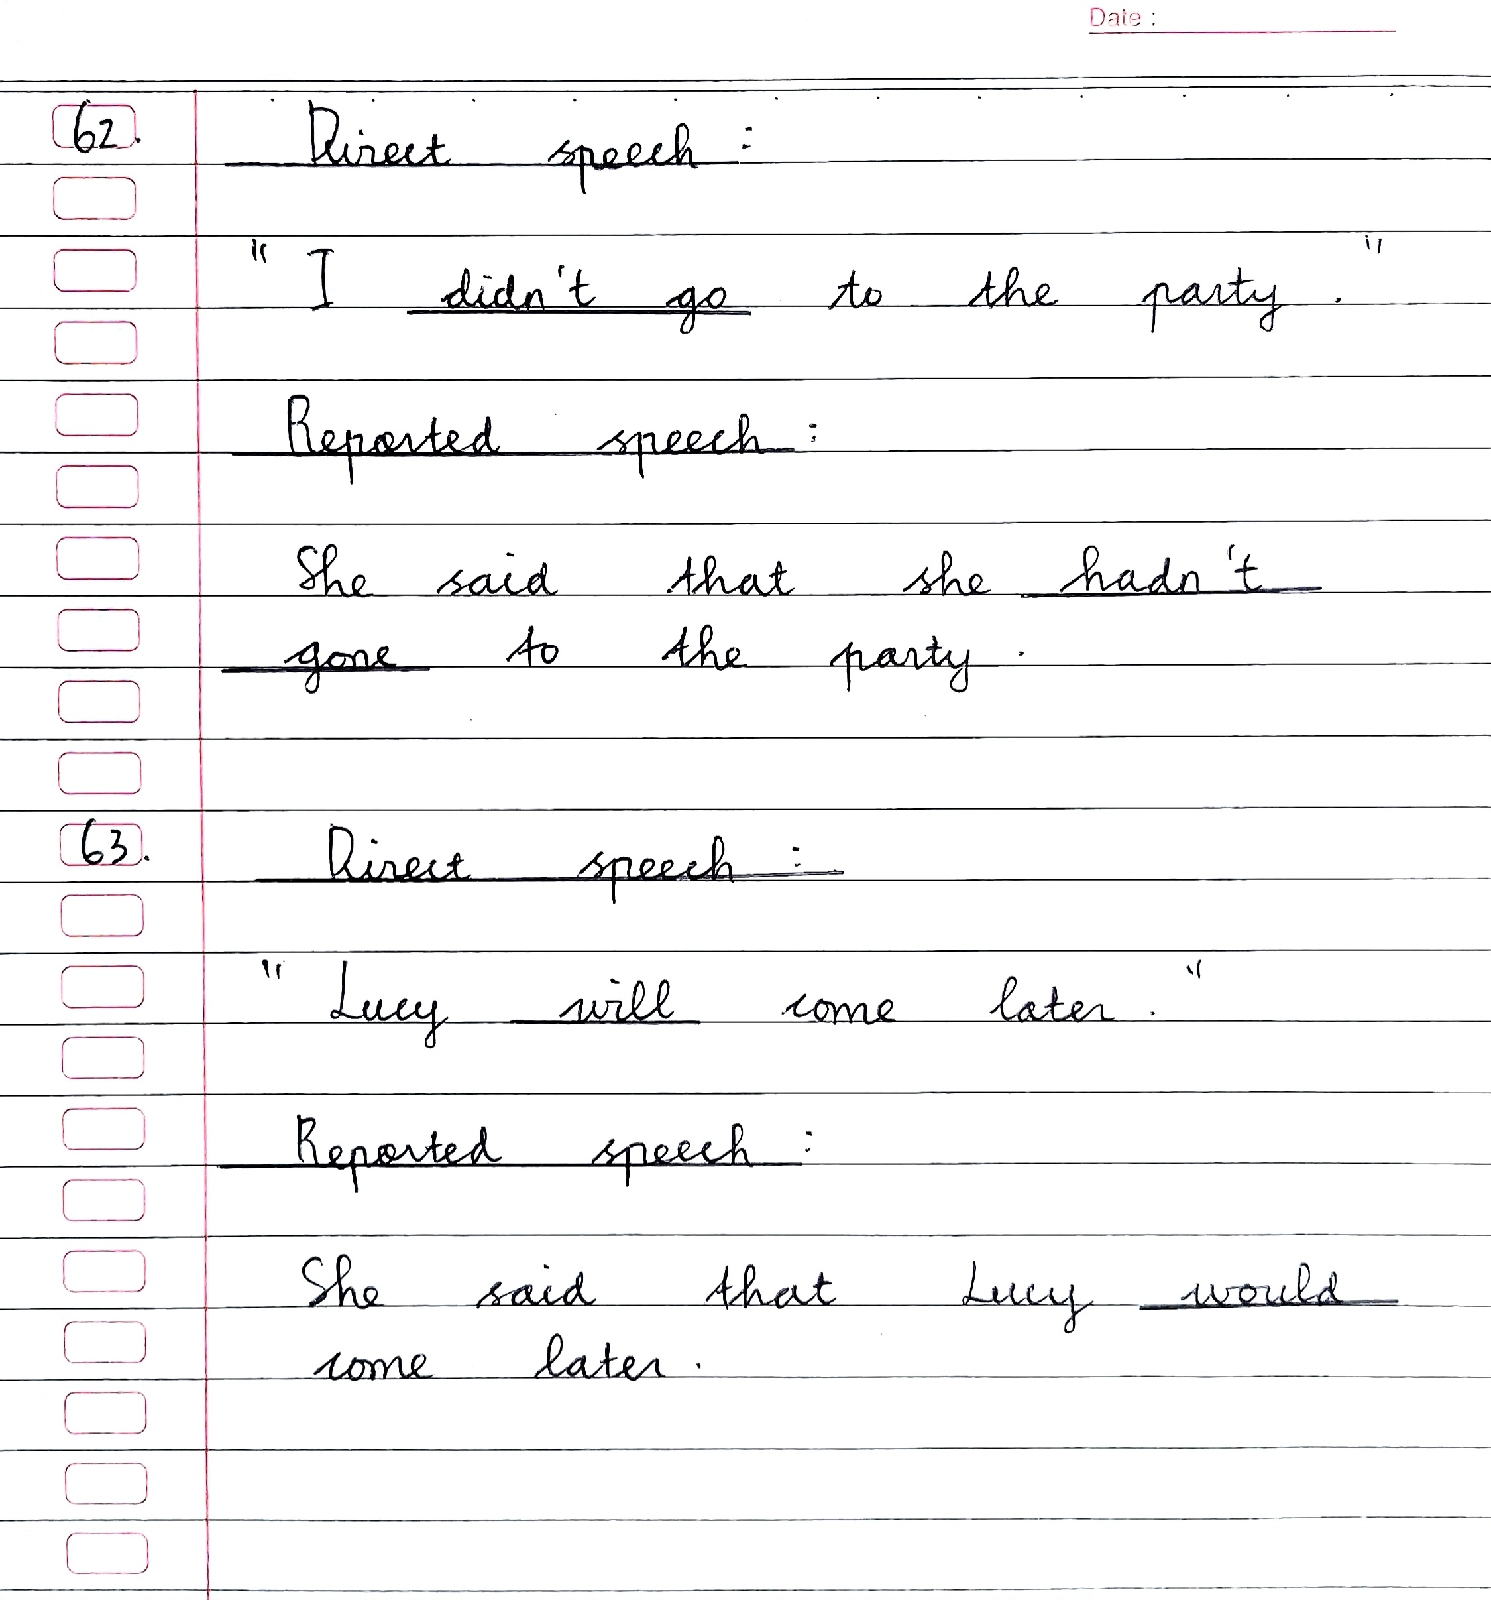 Date :
62. Direct speech :
" I didn't go to the party . "
Reported speech :
She said that she hadn't
gone to the party .
63. Direct speech :
" Lucy will come later . "
Reported speech :
She said that Lucy would
come later .